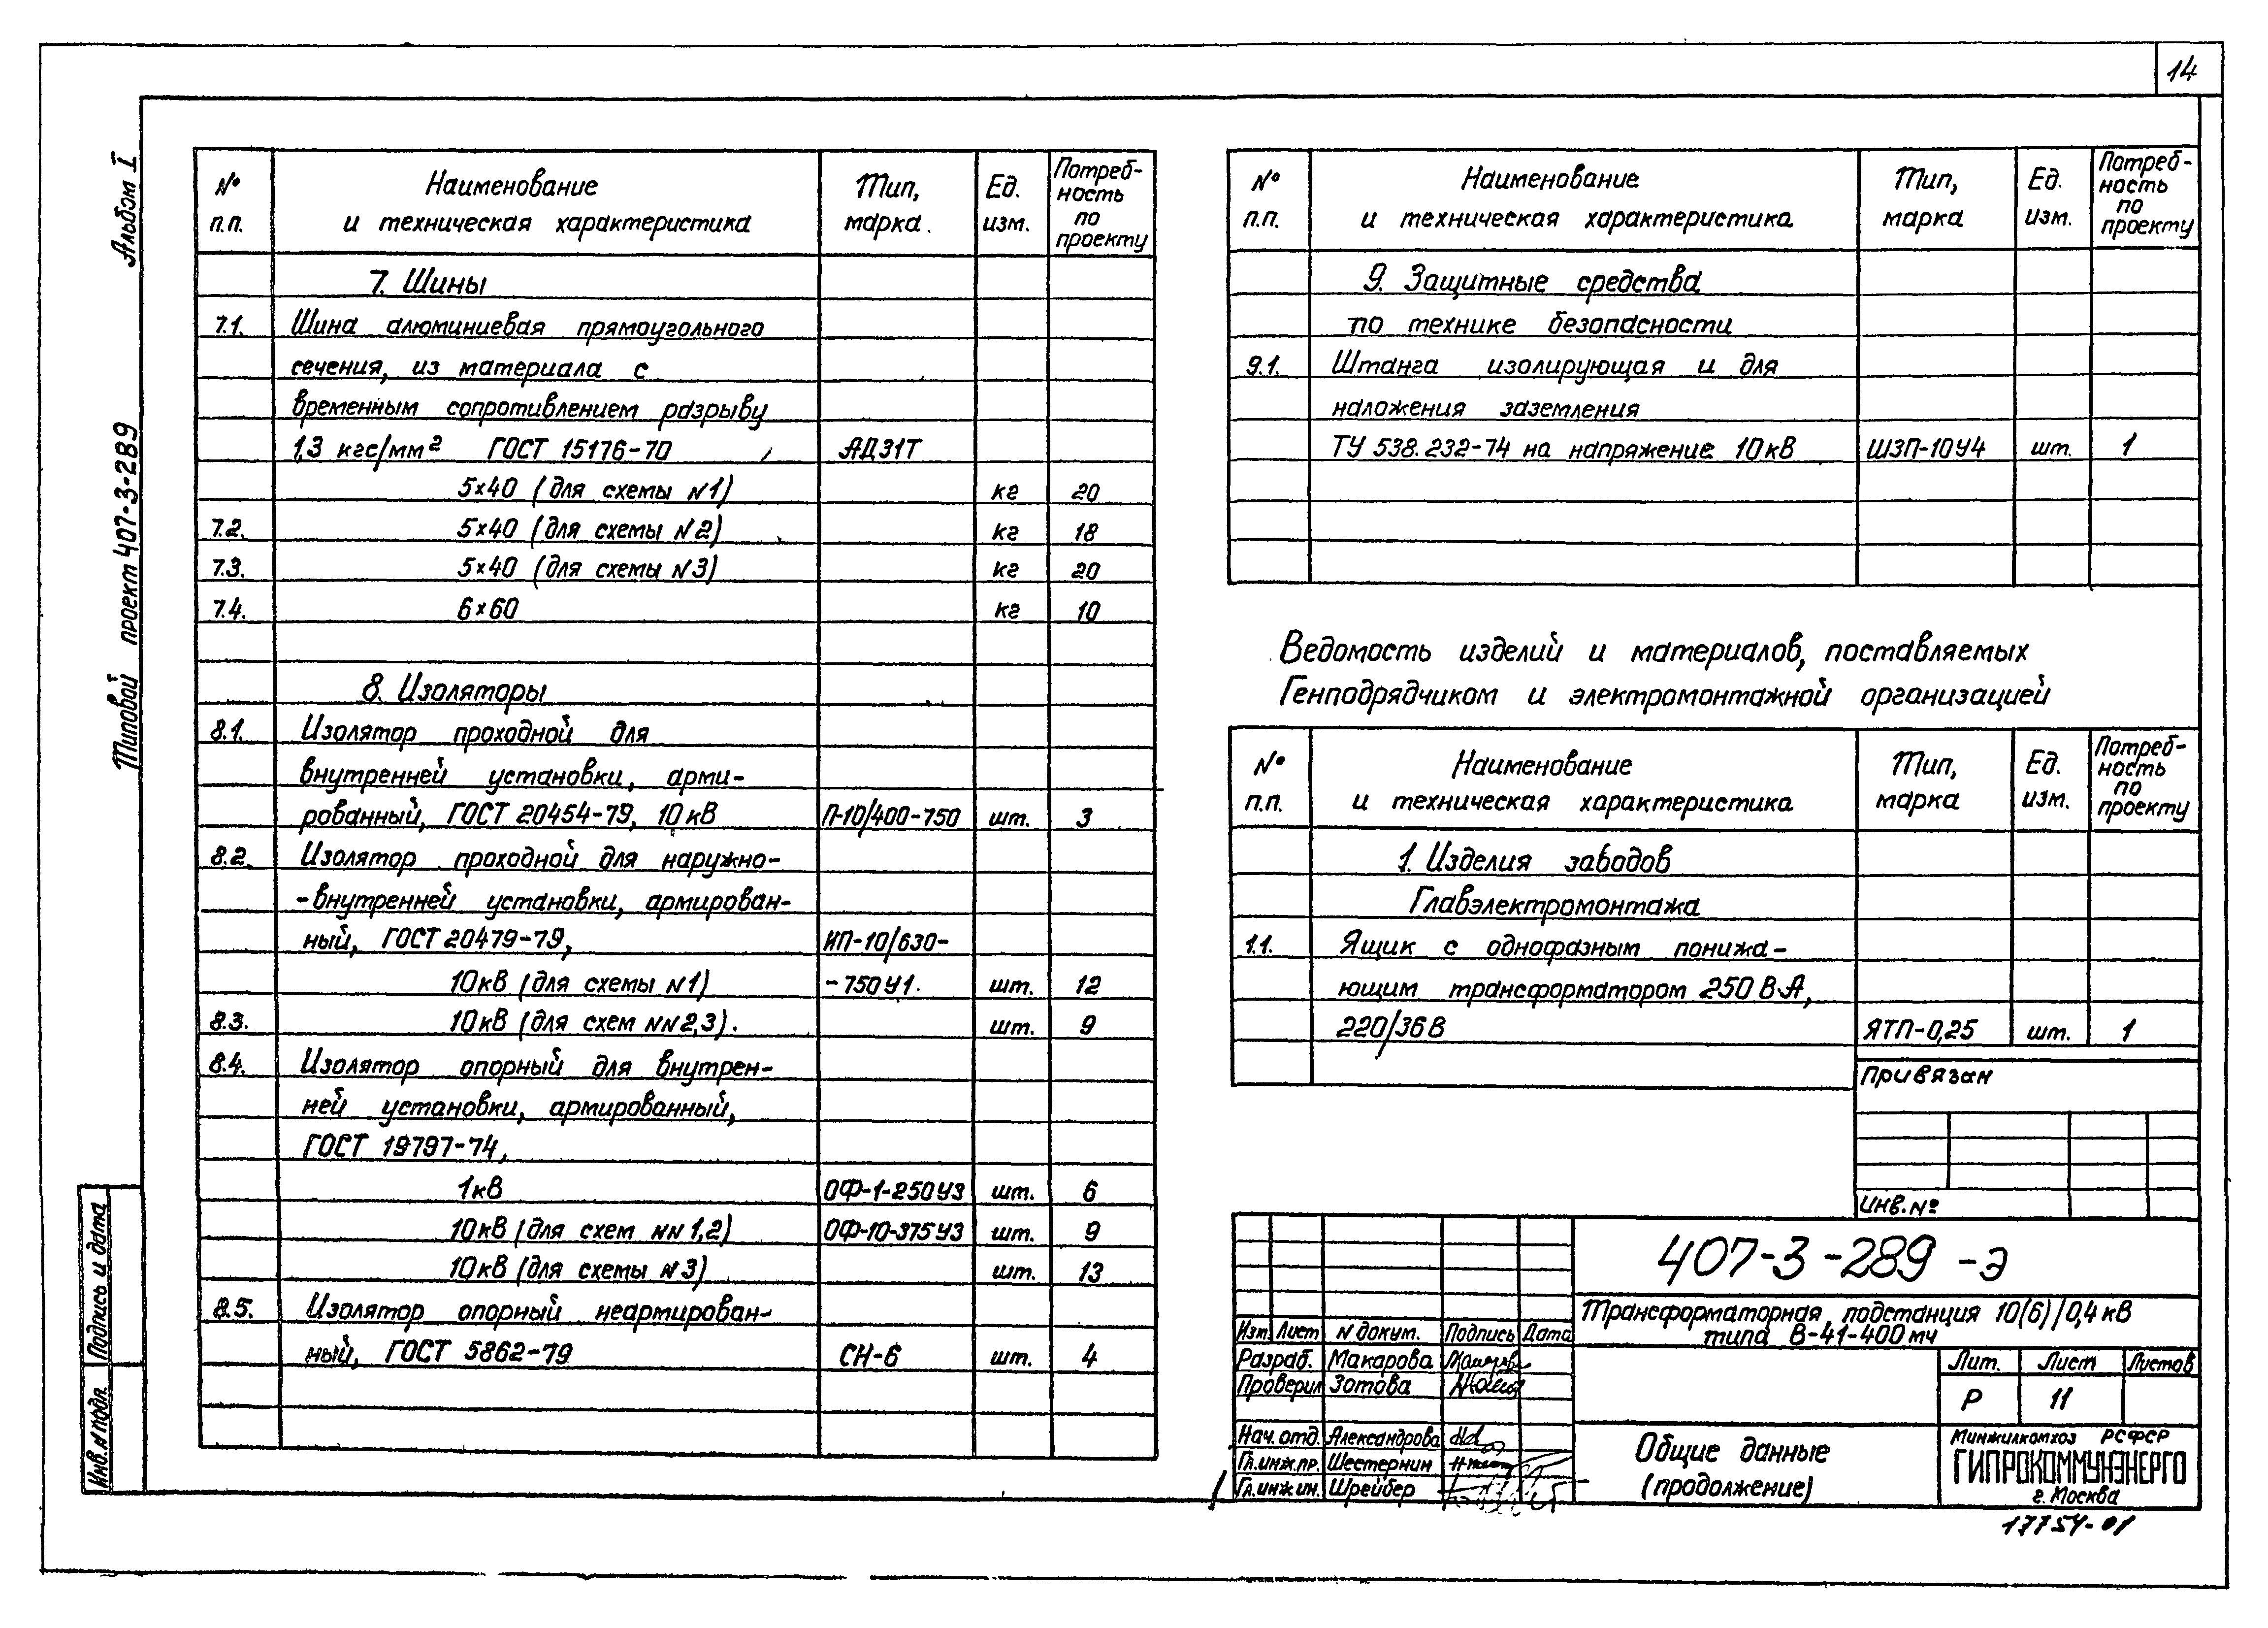 14
Альбом I
Типовой проект 407-3-289
№ п.п. Наименование и техническая характеристика Тип, марка. Ед. изм. Потреб-ность по проекту
7. Шины
7.1. Шина алюминиевая прямоугольного
сечения, из материала с
временным сопротивлением разрыву
1,3 кгс/мм² ГОСТ 15176-70 АД31Т
5×40 (для схемы N1) кг 20
7.2. 5×40 (для схемы N2) кг 18
7.3. 5×40 (для схемы N3) кг 20
7.4. 6×60 кг 10
8. Изоляторы
8.1. Изолятор проходной для
внутренней установки, арми-
рованный, ГОСТ 20454-79, 10 кВ П-10/400-750 шт. 3
8.2. Изолятор проходной для наружно-
-внутренней установки, армирован-
ный, ГОСТ 20479-79, ИП-10/630-
10кВ (для схемы N1) -750У1. шт. 12
8.3. 10кВ (для схем NN2,3). шт. 9
8.4. Изолятор опорный для внутрен-
ней установки, армированный,
ГОСТ 19797-74,
1кВ ОФ-1-250У3 шт. 6
10кВ (для схем NN 1,2) ОФ-10-375У3 шт. 9
10кВ (для схемы N3) шт. 13
8.5. Изолятор опорный неармирован-
ный, ГОСТ 5862-79 СН-6 шт. 4
№ п.п. Наименование и техническая характеристика Тип, марка Ед. изм. Потреб-ность по проекту
9. Защитные средства
по технике безопасности
9.1. Штанга изолирующая и для
наложения заземления
ТУ 538.232-74 на напряжение 10кВ ШЗП-10У4 шт. 1
Ведомость изделий и материалов, поставляемых
Генподрядчиком и электромонтажной организацией
№ п.п. Наименование и техническая характеристика Тип, марка Ед. изм. Потреб-ность по проекту
1. Изделия заводов
Главэлектромонтажа
1.1. Ящик с однофазным понижа-
ющим трансформатором 250 В·А,
220/36В ЯТП-0,25 шт. 1
Привязан
Инв.№
407-3-289-Э
Трансформаторная подстанция 10(6)/0,4кВ
типа В-41-400мч
Изм. Лист N докум. Подпись Дата
Разраб. Макарова
Проверил Зотова
Нач. отд. Александрова
Гл.инж.пр. Шестернин
Гл.инжин. Шрейбер
Лит. Лист Листов
Р 11
Общие данные
(продолжение)
Минжилкомхоз РСФСР
ГИПРОКОММУНЭНЕРГО
г. Москва
17754-01
Подпись и дата
Инв.N подл.